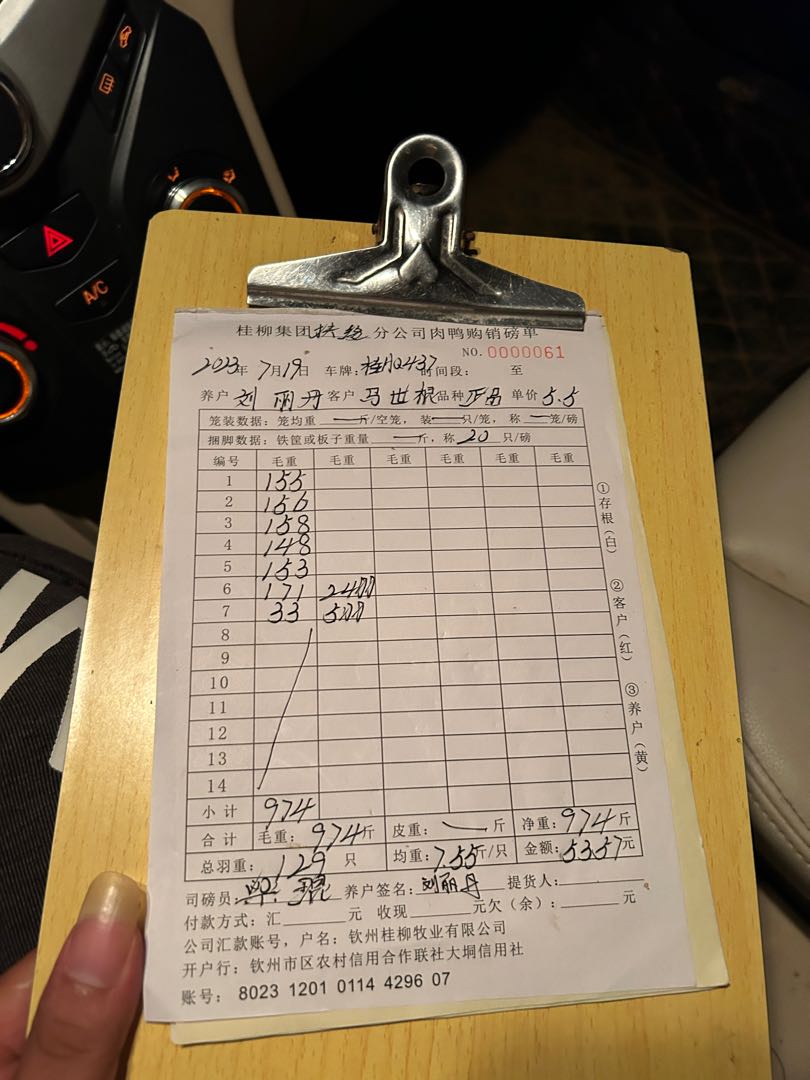 A/C
桂柳集团扶绥分公司肉鸭购销磅单
NO. 0000061
2023年7月19日 车牌: 437 时间段: 至
养户 刘丽丹 客户 马世根 品种 正品 单价 5.5
笼装数据: 笼均重 — 斤/空笼, 装 — 只/笼, 称 — 笼/磅
捆脚数据: 铁筐或板子重量 — 斤, 称 20 只/磅
编号 毛重 毛重 毛重 毛重 毛重
1 155
2 156
3 158
4 148
5 153
6 171 24只
7 33 5只
8
9
10
11
12
13
14
小计 974
合计 毛重: 974斤 皮重: — 斤 净重: 974斤
总羽重: 129 只 均重: 7.55斤/只 金额: 5357元
司磅员: 养户签名: 刘丽丹 提货人:
付款方式: 汇 元 收现 元欠(余): 元
公司汇款账号, 户名: 钦州桂柳牧业有限公司
开户行: 钦州市区农村信用合作联社大垌信用社
账号: 8023 1201 0114 4296 07
①存根(白)
②客户(红)
③养户(黄)